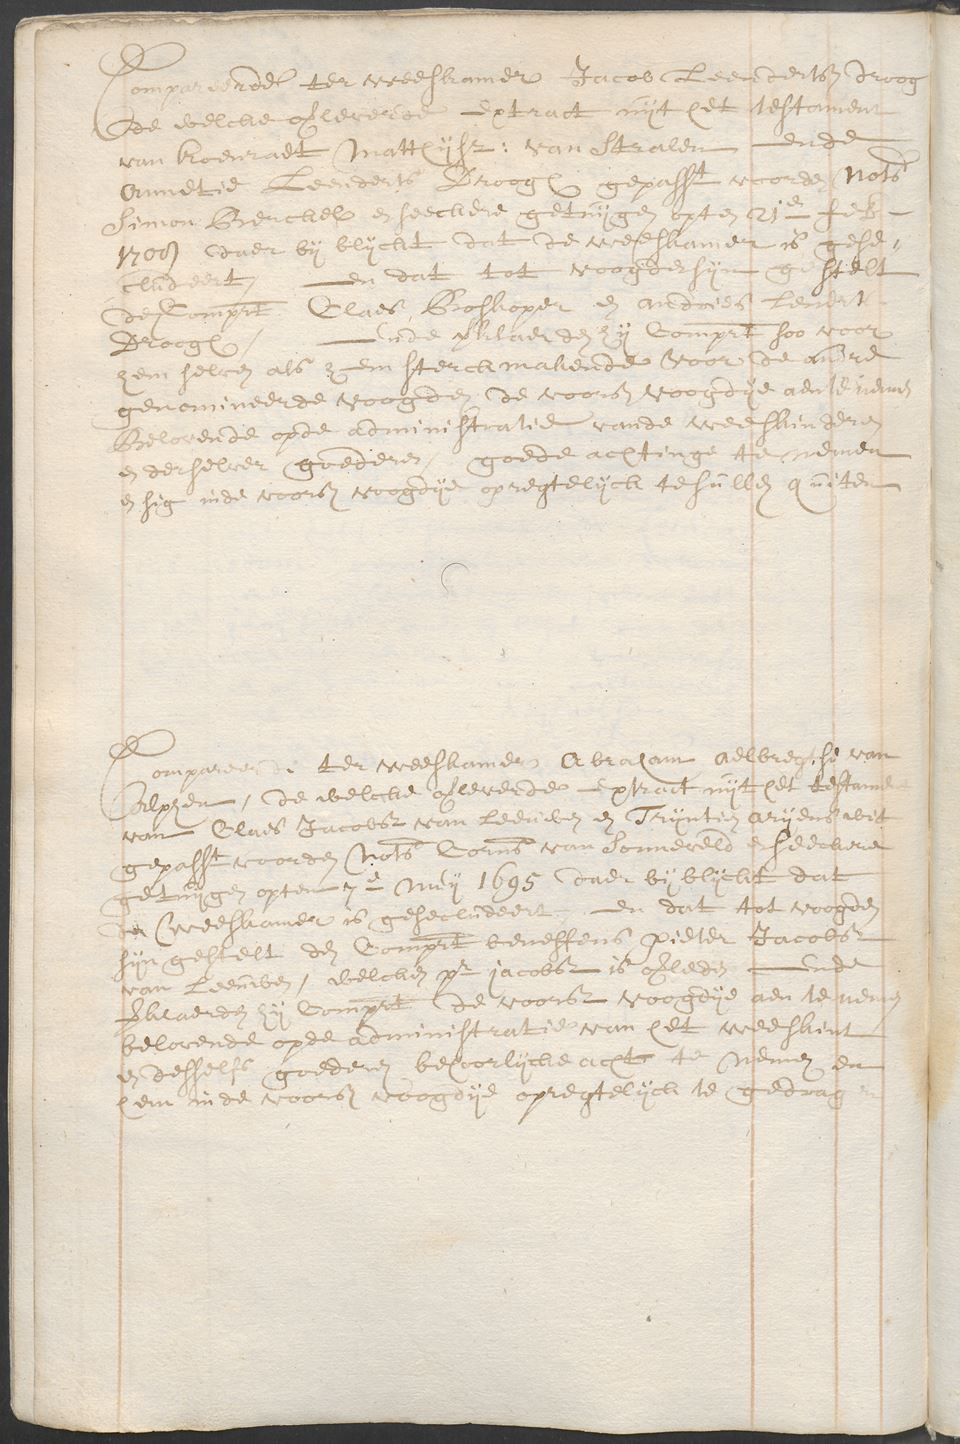 Compareerde ter weeskamer Jacob Leendertsz droog
de welcke ofleverde extract uijt het testament
van Koenraet Matthijsz: van Stralen ende
Annetie Leenderts Droogh gepasst voorden Nots
Simon Berckel en seeckere getuijgen opten 21en feb
1709 daer bij blijckt dat de weeskamer is gese,
cludeert, en dat tot voogden sijn gestelt
de Comprt Claes Boskoper en andries Leendtz
Droogh, ende verklaerden hij Comprt soo voor
hem selven als hem sterckmakende voor de andre
genomineerde voogden de voorsz voogdije aen te nemen
Belovende op de administratie vande weeskinderen
en derselver goederen, goede achtinge te nemen
en sig inde voorsz voogdije opregtelijck te sullen quiten
Compareerde ter weeskamer Abraham aelbregtse van
Calphen, de welcke ofleverde extract uijt het testame
van Claes Jacobsz van Leeuwen en Trijntien arijens uit
gepasst voorden Nots Corns van Sonneveld en seeckere
getuijgen opten 7e Meij 1695 daer bij blijckt dat
de Weeskamer is gesecludeert en dat tot voogden
sijn gestelt den Comprt beneffens pieter Jacobsz
van Leeuwen, welcken pr jacobsz is ofleden ende
verklaerden hij Comprt de voorsz voogdije aen te nemen
belovende op de administratie van het weeskint
en desselfs goederen behoorlijcke acht te nemen en
hem inde voorsz voogdije opregtelijck te gedragen